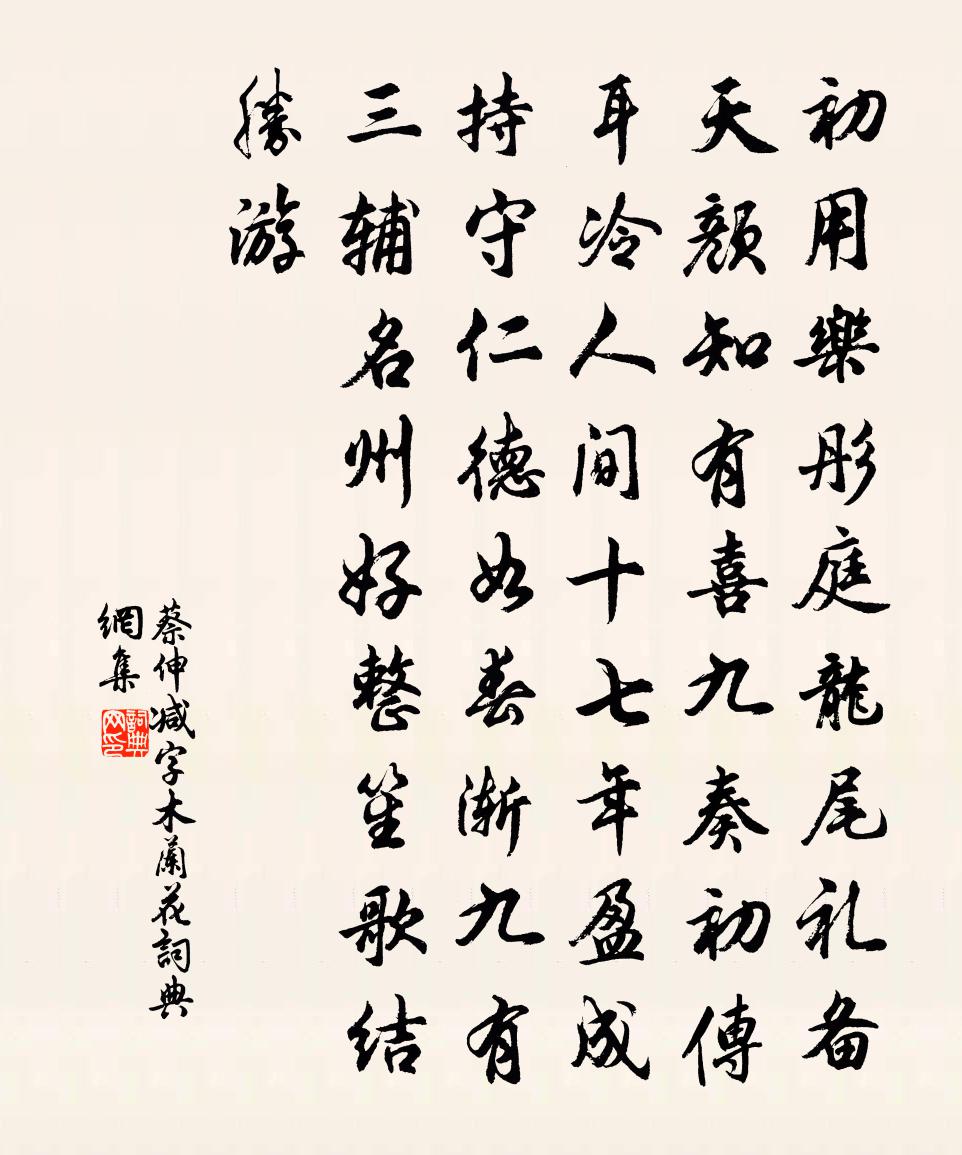 初用樂彤庭龍尾礼备
天顔知有喜九奏初傳
耳冷人间十七年盈成
持守仁德如春渐九有
三辅名州好整笙歌结
勝游
蔡伸减字木蘭花詞典
網集
詞典
网印